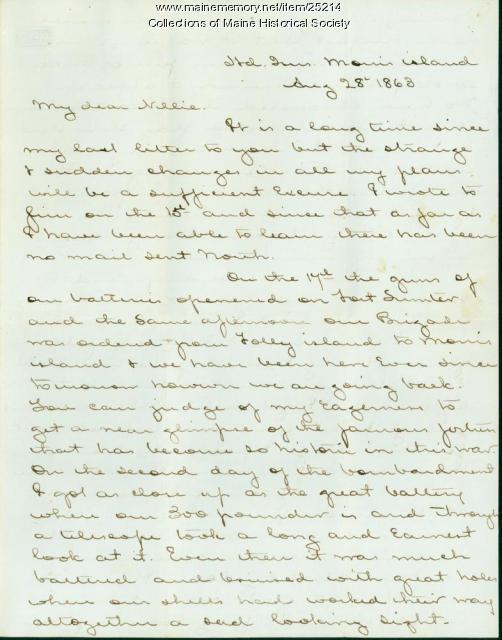 www.mainememory.net/item/25214
Collections of Maine Historical Society
Hd. Qrs. Morris island
Aug 28" 1863
My dear Nellie.
It is a long time since
my last letter to you but the strange
& sudden changes in all my plans
will be a sufficient Excuse. I wrote to
Jim on the 15th and since that as far as
I have been able to learn there has been
no mail sent North.
On the 17th the guns of
our batteries openened on Fort Sumter
and the same afternoon our Brigade
was ordered from Folly island to Morris
island & we have been here Ever since
tomorrow however we are going back.
You can judge of my Eagerness to
get a near glimpse of the famous fortress
that has become so historic in this war.
On the second day of the bombardment
I got as close up as the great battery
where our 300 pounder is and through
a telescope took a long and Earnest
look at it. Even then it was much
battered and bruised with great holes
where our shells had worked their way
altogether a sad looking sight.